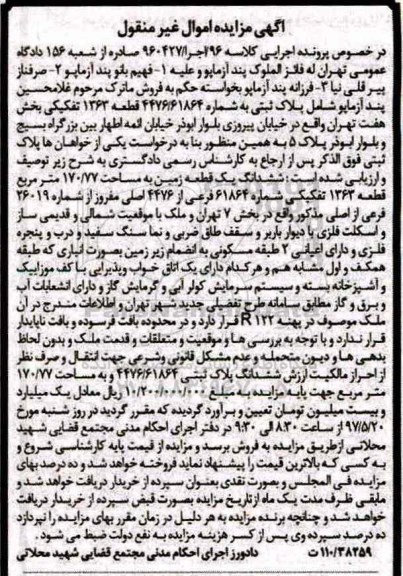 آگهی مزایده اموال غیر منقول
در خصوص پرونده اجرایی کلاسه ۹۶ اجرا/۹۶۰۴۲۷ صادره از شعبه ۱۵۶ دادگاه
عمومی تهران له فائز الملوک پند آزمایو و علیه ۱- فهیم بانو پند آزمایو ۲- صرفناز
پیر قلی نیا ۳- فرزانه پند آزمایو بخواسته حکم به فروش ماترک مرحوم غلامحسین
پند آزمایو شامل پلاک ثبتی به شماره ۴۴۷۶/۶۱۸۶۴ قطعه ۱۳۶۳ تفکیکی بخش
هفت تهران واقع در خیابان پیروزی بلوار ابوذر خیابان ائمه اطهار بین بزرگراه بسیج
و بلوار ابوذر پلاک ۵ به همین منظور بنا به درخواست یکی از خواهان ها پلاک
ثبتی فوق الذکر پس از ارجاع به کارشناس رسمی دادگستری به شرح زیر توصیف
و ارزیابی شده است: ششدانگ یک قطعه زمین به مساحت ۱۷۰/۷۷ متر مربع
قطعه ۱۳۶۳ تفکیکی شماره ۶۱۸۶۴ فرعی از ۴۴۷۶ اصلی مفروز از شماره ۲۶۰۱۹
فرعی از اصلی مذکور واقع در بخش ۷ تهران و ملک با موقعیت شمالی و قدیمی ساز
و اسکلت فلزی با دیوار باربر و سقف طاق ضربی و نما سنگ سفید و درب و پنجره
فلزی و دارای اعیانی ۲ طبقه مسکونی به انضمام زیر زمین بصورت انباری که طبقه
همکف و اول مشابه هم و هر کدام دارای یک اتاق خواب وپذیرایی با کف موزاییک
و آشپزخانه بسته و سیستم سرمایش کولر آبی و گرمایش گاز و دارای انشعابات آب
و برق و گاز مطابق سامانه طرح تفضیلی جدید شهر تهران و اطلاعات مندرج در آن
ملک موصوف در پهنه R۱۲۲ قرار دارد و در محدوده بافت فرسوده و بافت ناپایدار
قرار ندارد و با توجه به بررسی ها و موقعیت و متعلقات و قدمت ملک و بدون لحاظ
بدهی ها و دیون متحمله و عدم مشکل قانونی وشرعی جهت انتقال و صرف نظر
از احراز مالکیت ارزش ششدانگ پلاک ثبتی ۴۴۷۶/۶۱۸۶۴ و به مساحت ۱۷۰/۷۷
متر مربع جهت پایه مزایده به مبلغ ۱۰/۲۰۰/۰۰۰/۰۰۰ ریال معادل یک میلیارد
و بیست میلیون تومان تعیین و برآورد گردیده که مقرر گردید در روز شنبه مورخ
۹۷/۵/۲۰ از ساعت ۸:۳۰ الی ۹:۳۰ در دفتر اجرای احکام مدنی مجتمع قضایی شهید
محلاتی ازطریق مزایده به فروش برسد و مزایده از قیمت پایه کارشناسی شروع و
به کسی که بالاترین قیمت را پیشنهاد نماید فروخته خواهد شد و ده درصد بهای
مزایده فی المجلس و بصورت نقدی بعنوان سپرده از خریدار دریافت خواهد شد و
مابقی ظرف مدت یک ماه ازتاریخ مزایده بصورت قبض سپرده از خریدار دریافت
خواهد شد و چنانچه برنده مزایده به هر دلیل در زمان مقرر بهای مزایده را نپردازد
ده درصد سپرده وی پس از کسر هزینه مزایده به نفع دولت ضبط می شود.
۱۱۰/۳۸۲۵۹ ت دادورز اجرای احکام مدنی مجتمع قضایی شهید محلاتی